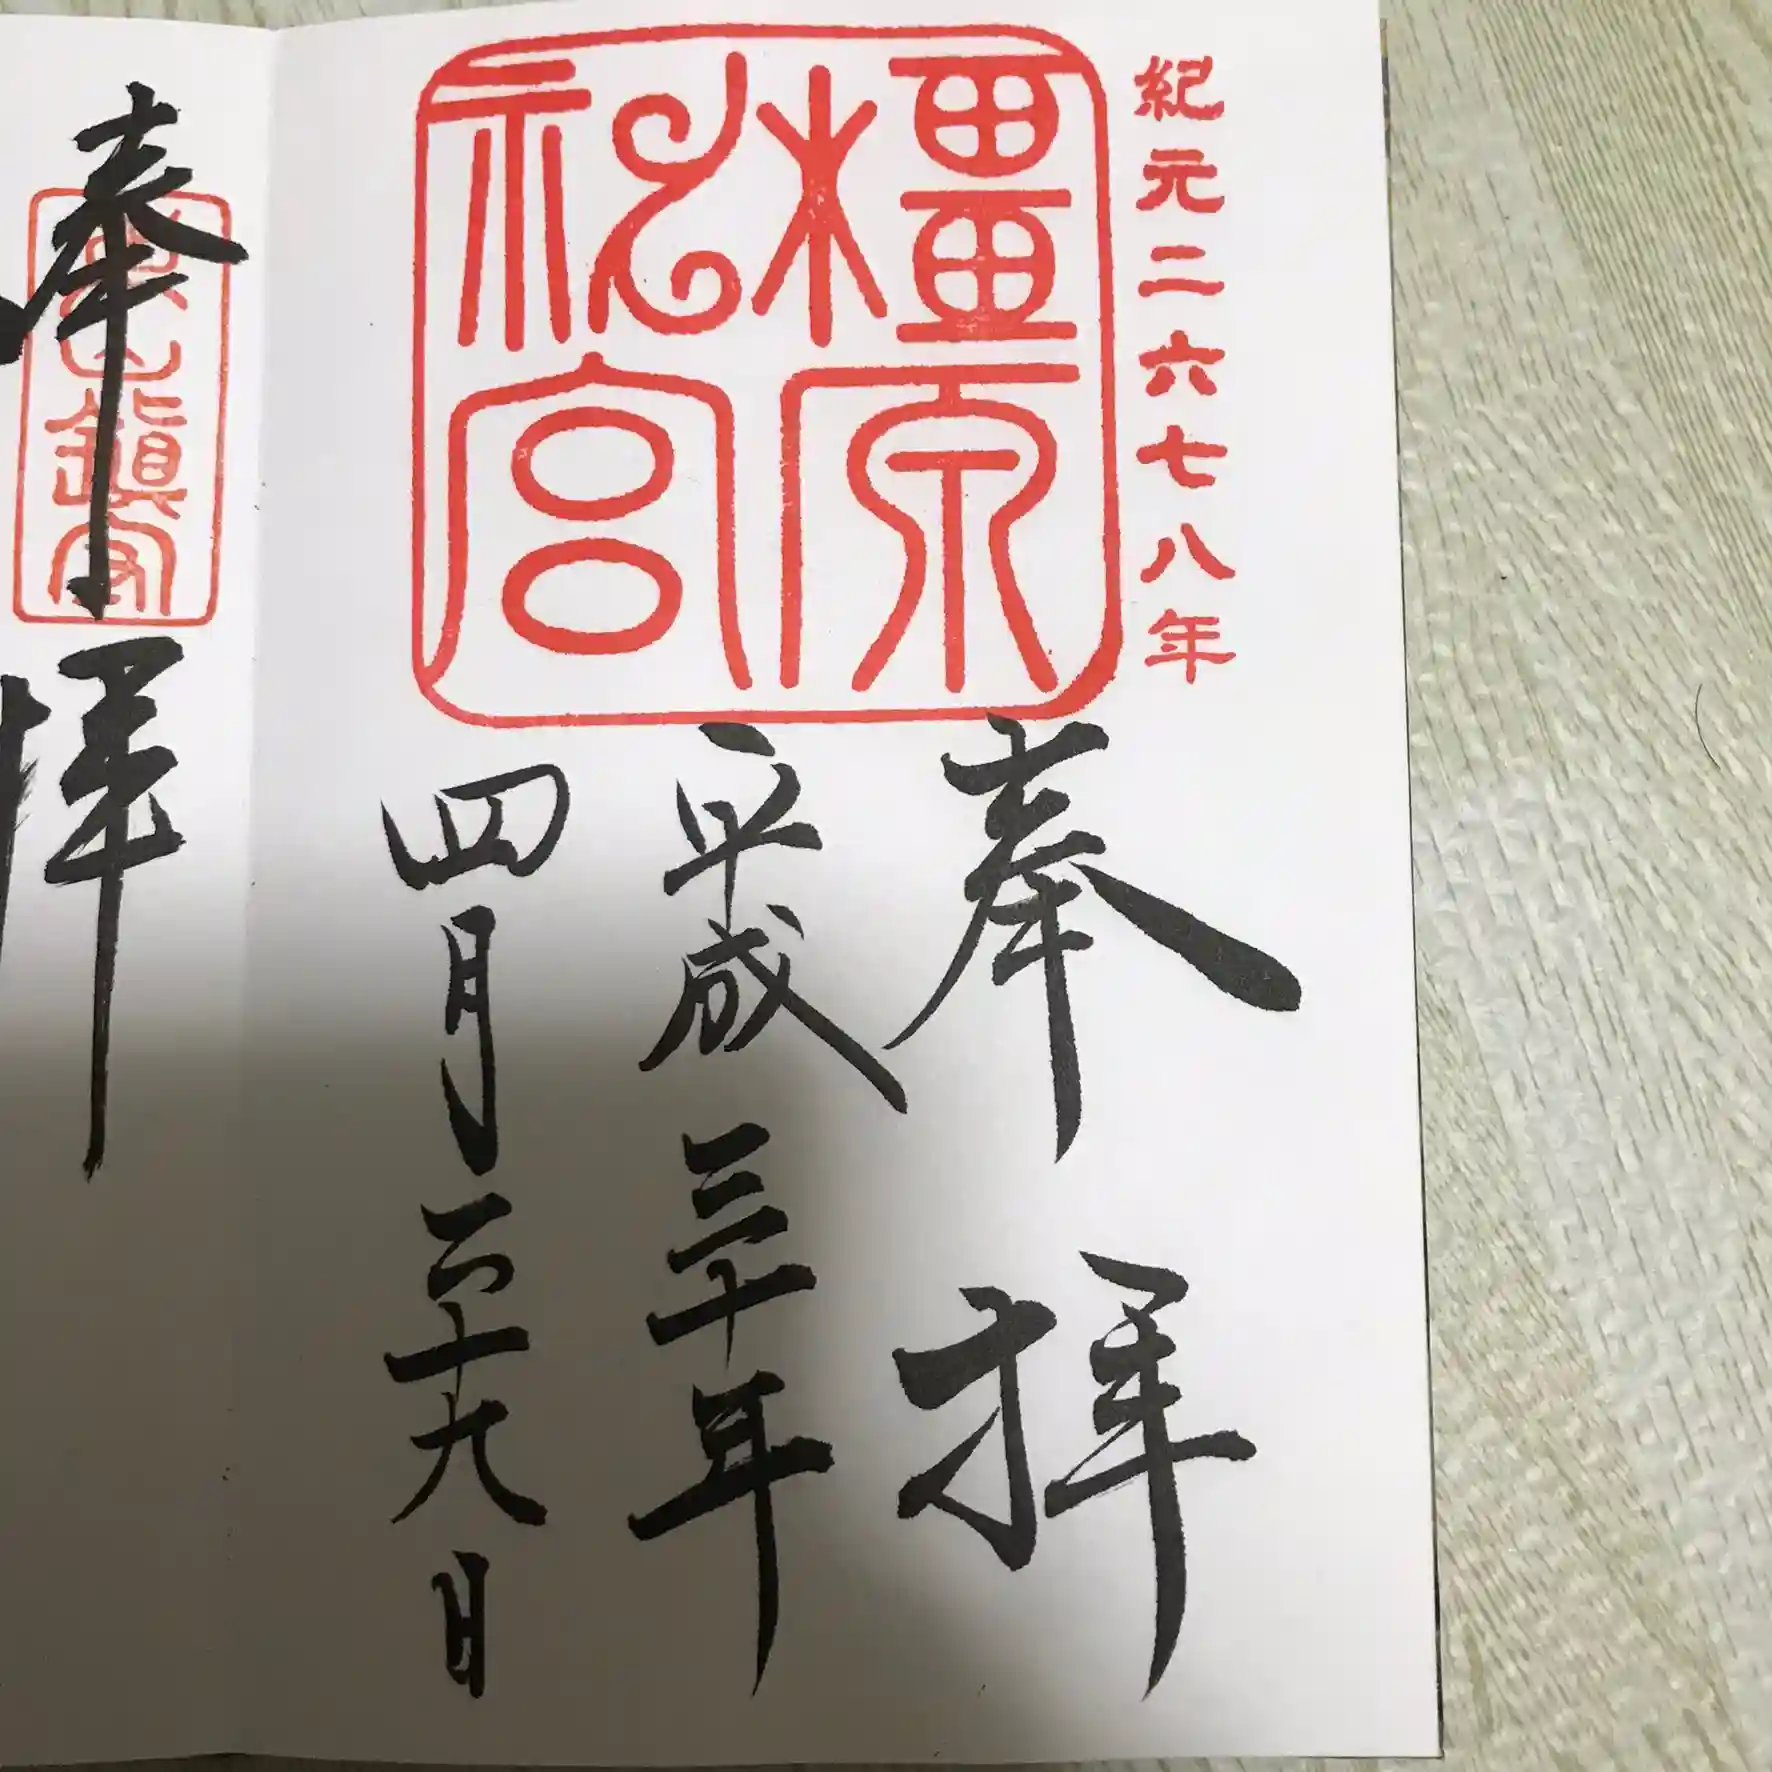 紀元二六七八年
橿原
神宮
奉拝
平成三十年
四月二十九日
奉拝